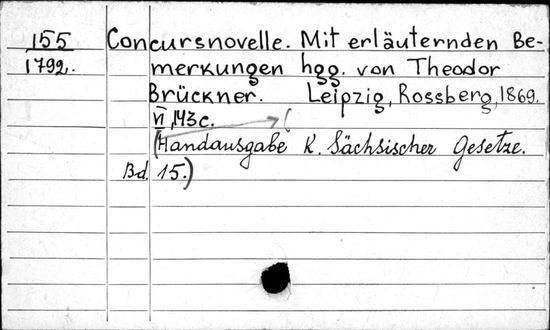 155 Concursnovelle. Mit erläuternden Be-
1792. merkungen hgg. von Theodor
Brückner. Leipzig, Rossberg, 1869.
VI, 143 c. (
(Handausgabe K. Sächsischer Gesetze.
Bd. 15.)